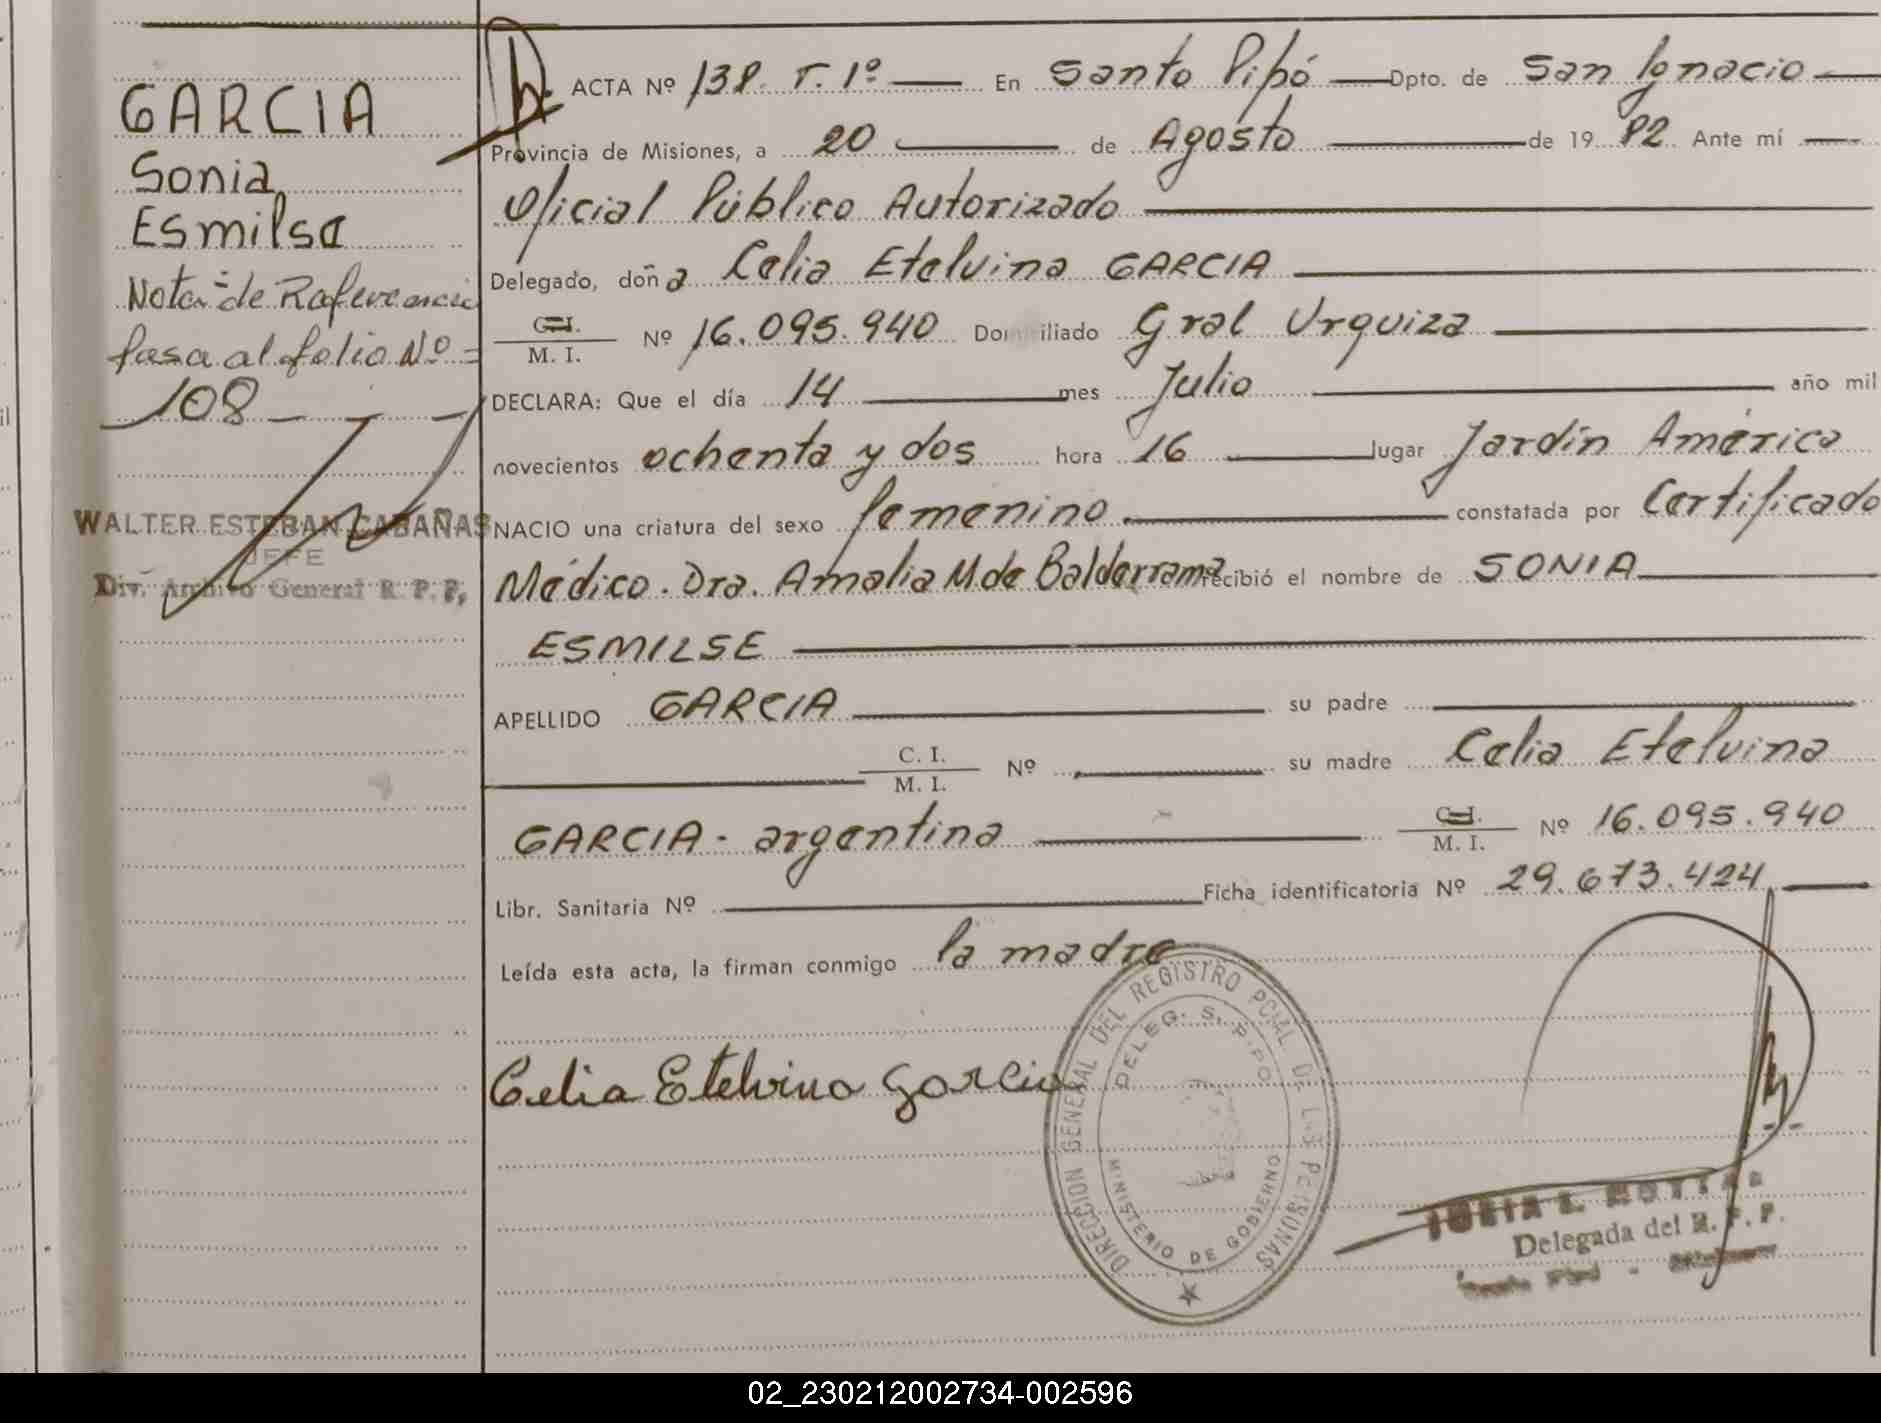 GARCIA
Sonia
Esmilsa
Nota de Referencia
pasa al folio Nº
108
WALTER ESTEBAN CABAÑAS
JEFE
Div. Archivo General R. P. P.
ACTA Nº 138. T. 1º En Santo Pipó Dpto. de San Ignacio
Provincia de Misiones, a 20 de Agosto de 19 82 Ante mí
Oficial Público Autorizado
Delegado, doña Celia Etelvina GARCIA
C. I.
M. I. Nº 16.095.940 Domiciliado Gral Urquiza
DECLARA: Que el día 14 mes Julio año mil
novecientos ochenta y dos hora 16 lugar Jardín América
NACIO una criatura del sexo femenino constatada por Certificado
Médico. Dra. Amalia M. de Balderrama recibió el nombre de SONIA
ESMILSE
APELLIDO GARCIA su padre
C. I.
M. I. Nº su madre Celia Etelvina
GARCIA - argentina C. I.
M. I. Nº 16.095.940
Libr. Sanitaria Nº Ficha identificatoria Nº 29.673.424
Leída esta acta, la firman conmigo la madre
Celia Etelvina Garcia
DIRECCION GENERAL DEL REGISTRO PCIAL DE LAS PERSONAS
DELEG. S. PIPO
MINISTERIO DE GOBIERNO
Delegada del R. P. P.
02_230212002734-002596